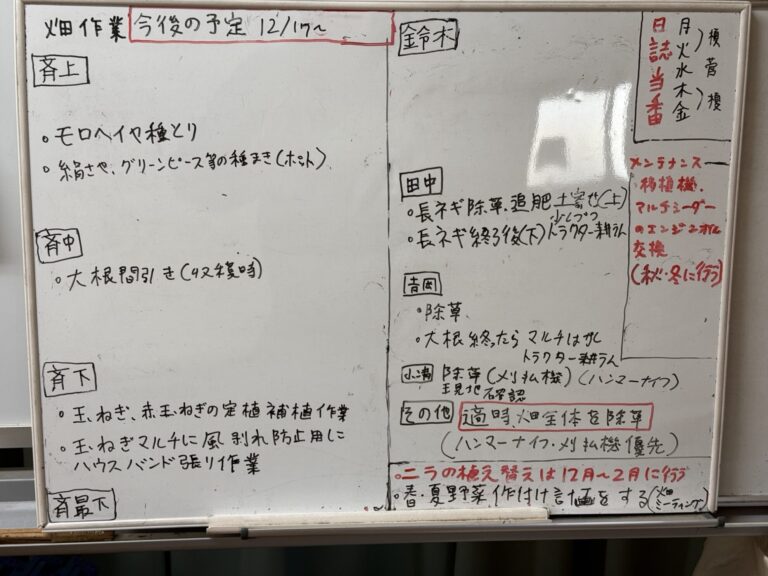 畑作業 今後の予定 12/17~
斉上
・モロヘイヤ種とり
・絹さや、グリーンピース等の種まき(ポット)
斉中
・大根間引き(収穫時)
斉下
・玉ねぎ、赤玉ねぎの定植補植作業
・玉ねぎマルチに風剥れ防止用に
ハウスバンド張り作業
斉最下
鈴木
田中
・長ネギ除草、追肥 土寄せ(上)
少しづつ
・長ネギ終了後(下)トラクター耕うん
吉岡
・除草
・大根終ったら マルチはがし
トラクター耕うん
除草(刈払機)(ハンマーナイフ)
確認
その他 適時、畑全体を除草
(ハンマーナイフ・刈払機優先)
・ニラの植え替えは12月~2月に行う
・春・夏野菜作付け計画をする(畑ミーティング)
日誌当番
月
火
水
木
金
榎
菅
榎
メンテナンス
・移植機、
マルチシーダー
のエンジンオイル
交換
(秋・冬に行う)